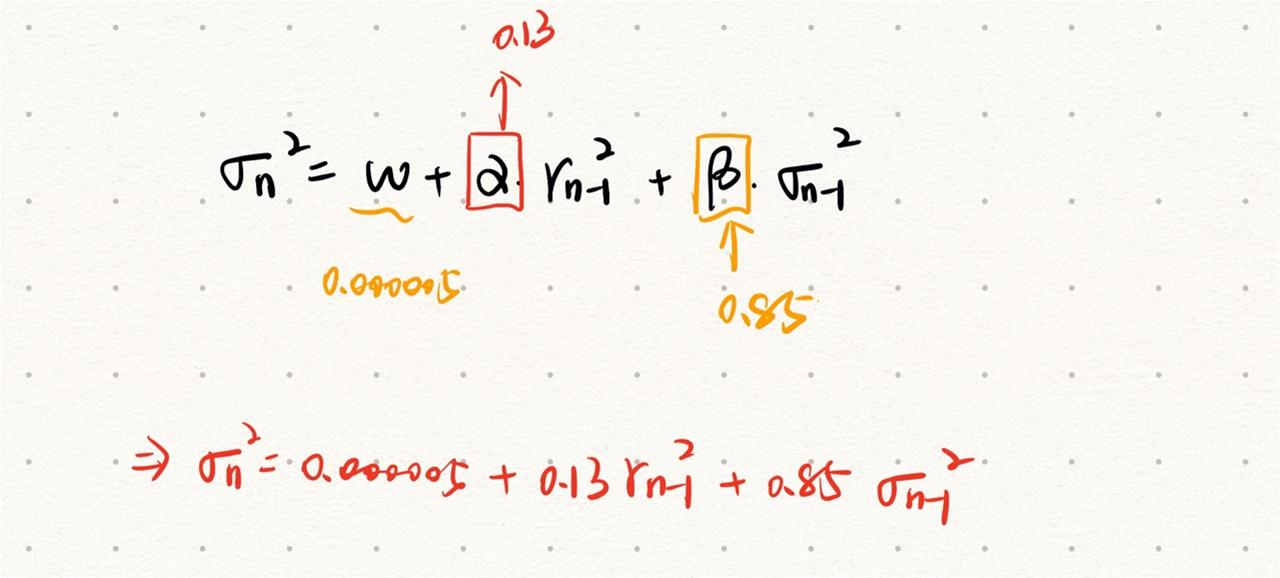 0.13
σn² = ω + α · rn-1² + β · σn-1²
0.000005
0.85
⇒ σn² = 0.000005 + 0.13 rn-1² + 0.85 σn-1²